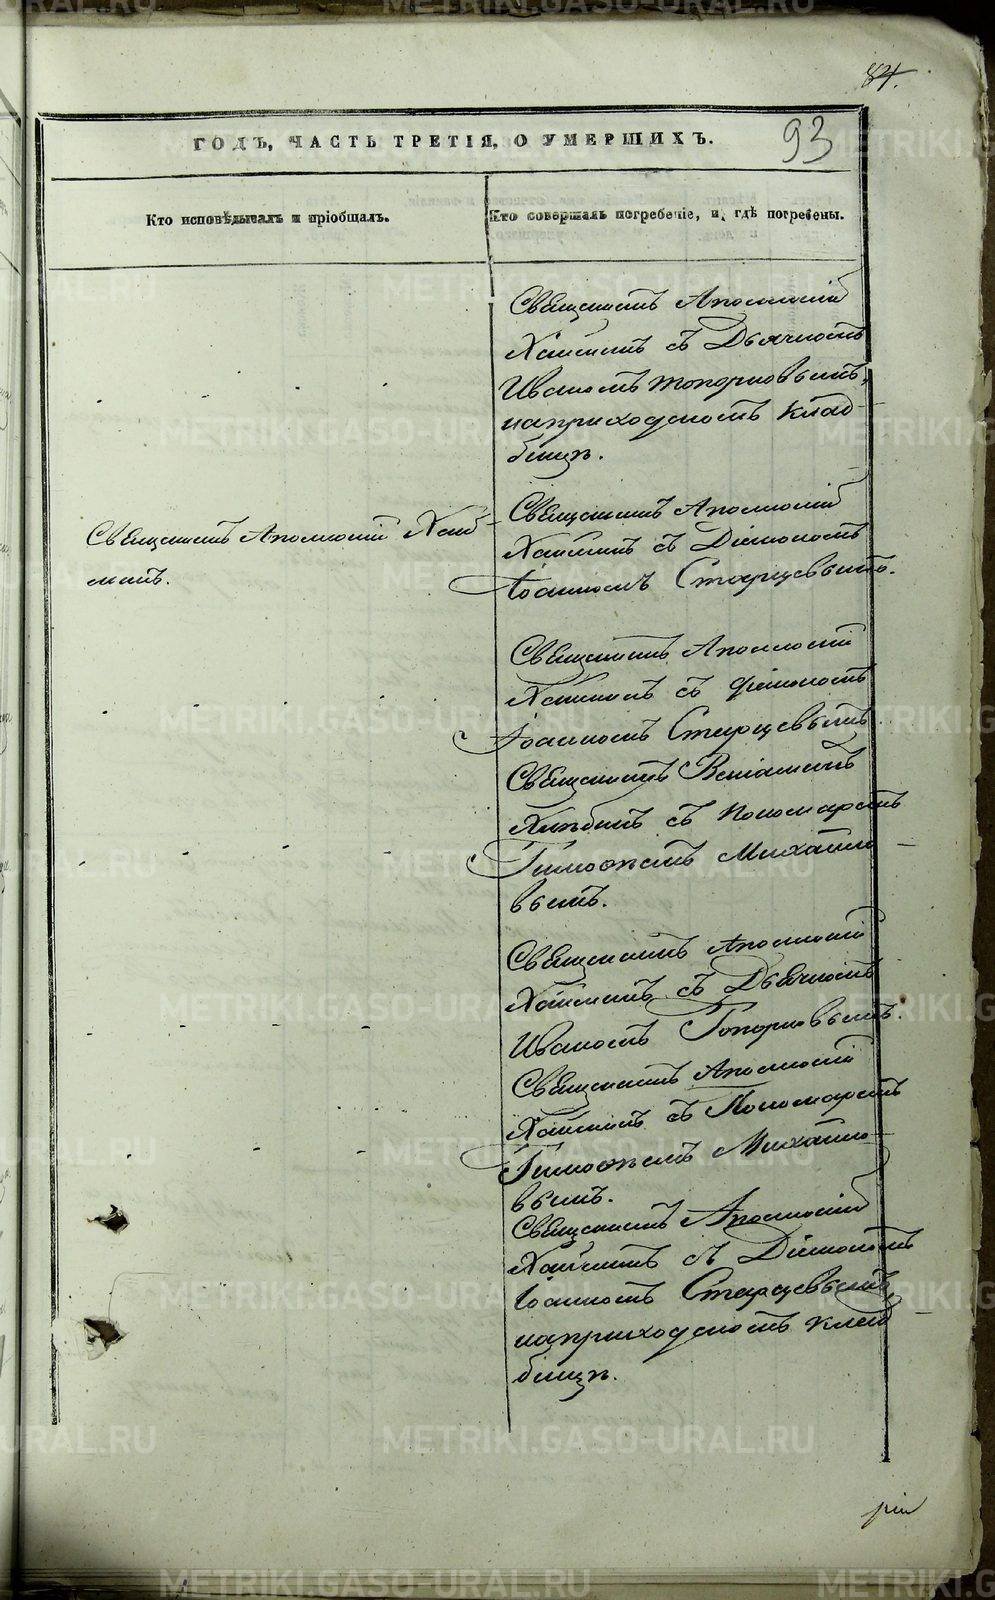 84.
93
ГОДЪ, ЧАСТЬ ТРЕТІЯ, О УМЕРШИХЪ.
Кто исповѣдывалъ и пріобщалъ.
Кто совершалъ погребеніе, и, гдѣ погребены.
Священникъ Аполлоній
съ Дьячкомъ
Иваномъ Топорковымъ,
на приходскомъ клад-
бищѣ.
Священникъ Аполлоній
Священникъ Аполлоній
съ Діакономъ
Іоанномъ Старцевымъ.
Священникъ Аполлоній
съ Діакономъ
Іоанномъ Старцевымъ
Священникъ Веніаминъ
Хлѣбинъ съ Пономаремъ
Тимофѣемъ Михайло-
вымъ.
Священникъ Аполлоній
съ Дьячкомъ
Иваномъ Топорковымъ.
Священникъ Аполлоній
съ Пономаремъ
Тимофѣемъ Михайло-
вымъ.
Священникъ Аполлоній
съ Діакономъ
Іоанномъ Старцевымъ,
на приходскомъ клад-
бищѣ.
METRIKI.GASO-URAL.RU